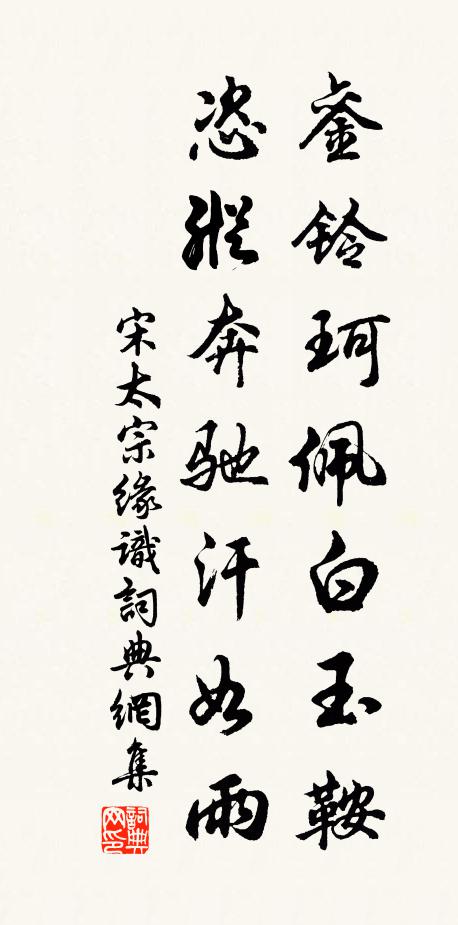 鑾鈴珂佩白玉鞍
恣縱奔馳汗如雨
宋太宗緣識詞典網集
詞典网印